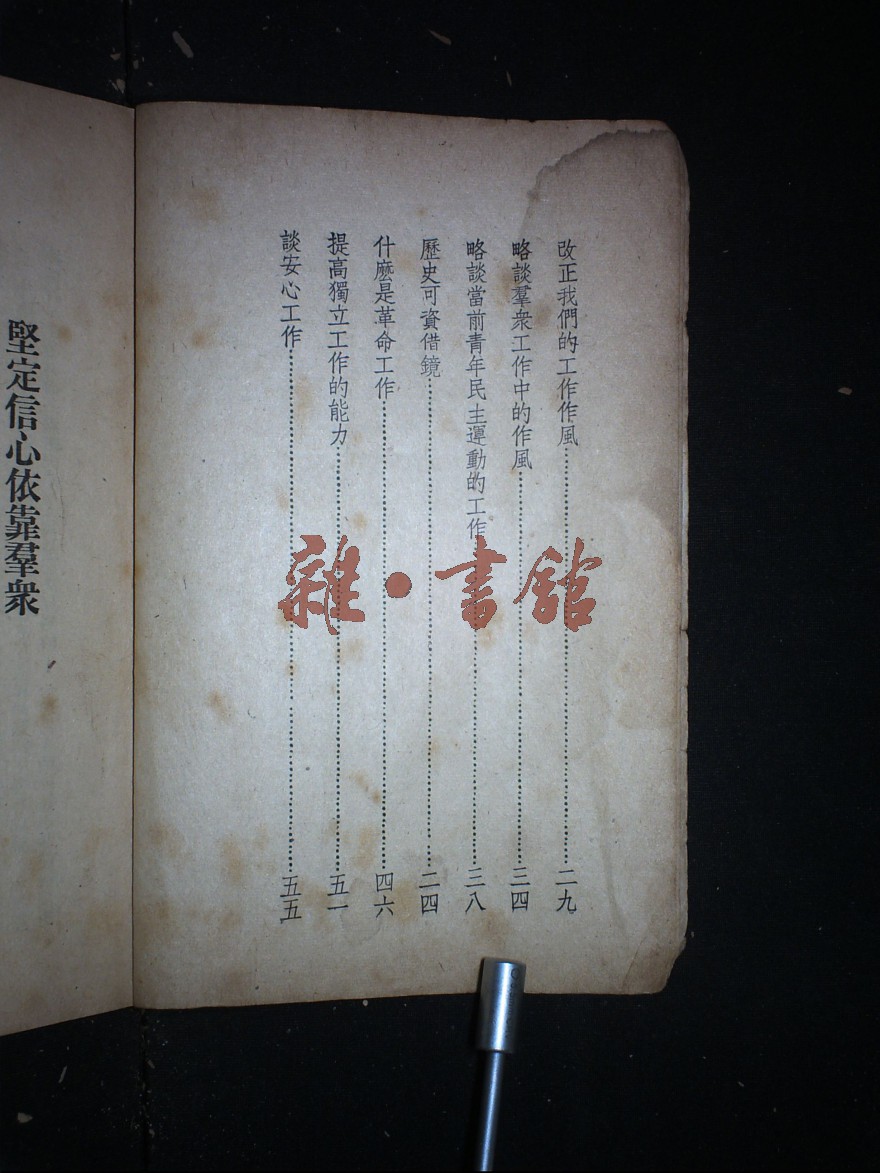 改正我們的工作作風……二九
略談羣衆工作中的作風……三四
略談當前青年民主運動的工作……三八
歷史可資借鏡……二四
什麽是革命工作……四六
提高獨立工作的能力……五一
談安心工作……五五
堅定信心依靠羣衆
雜·書館